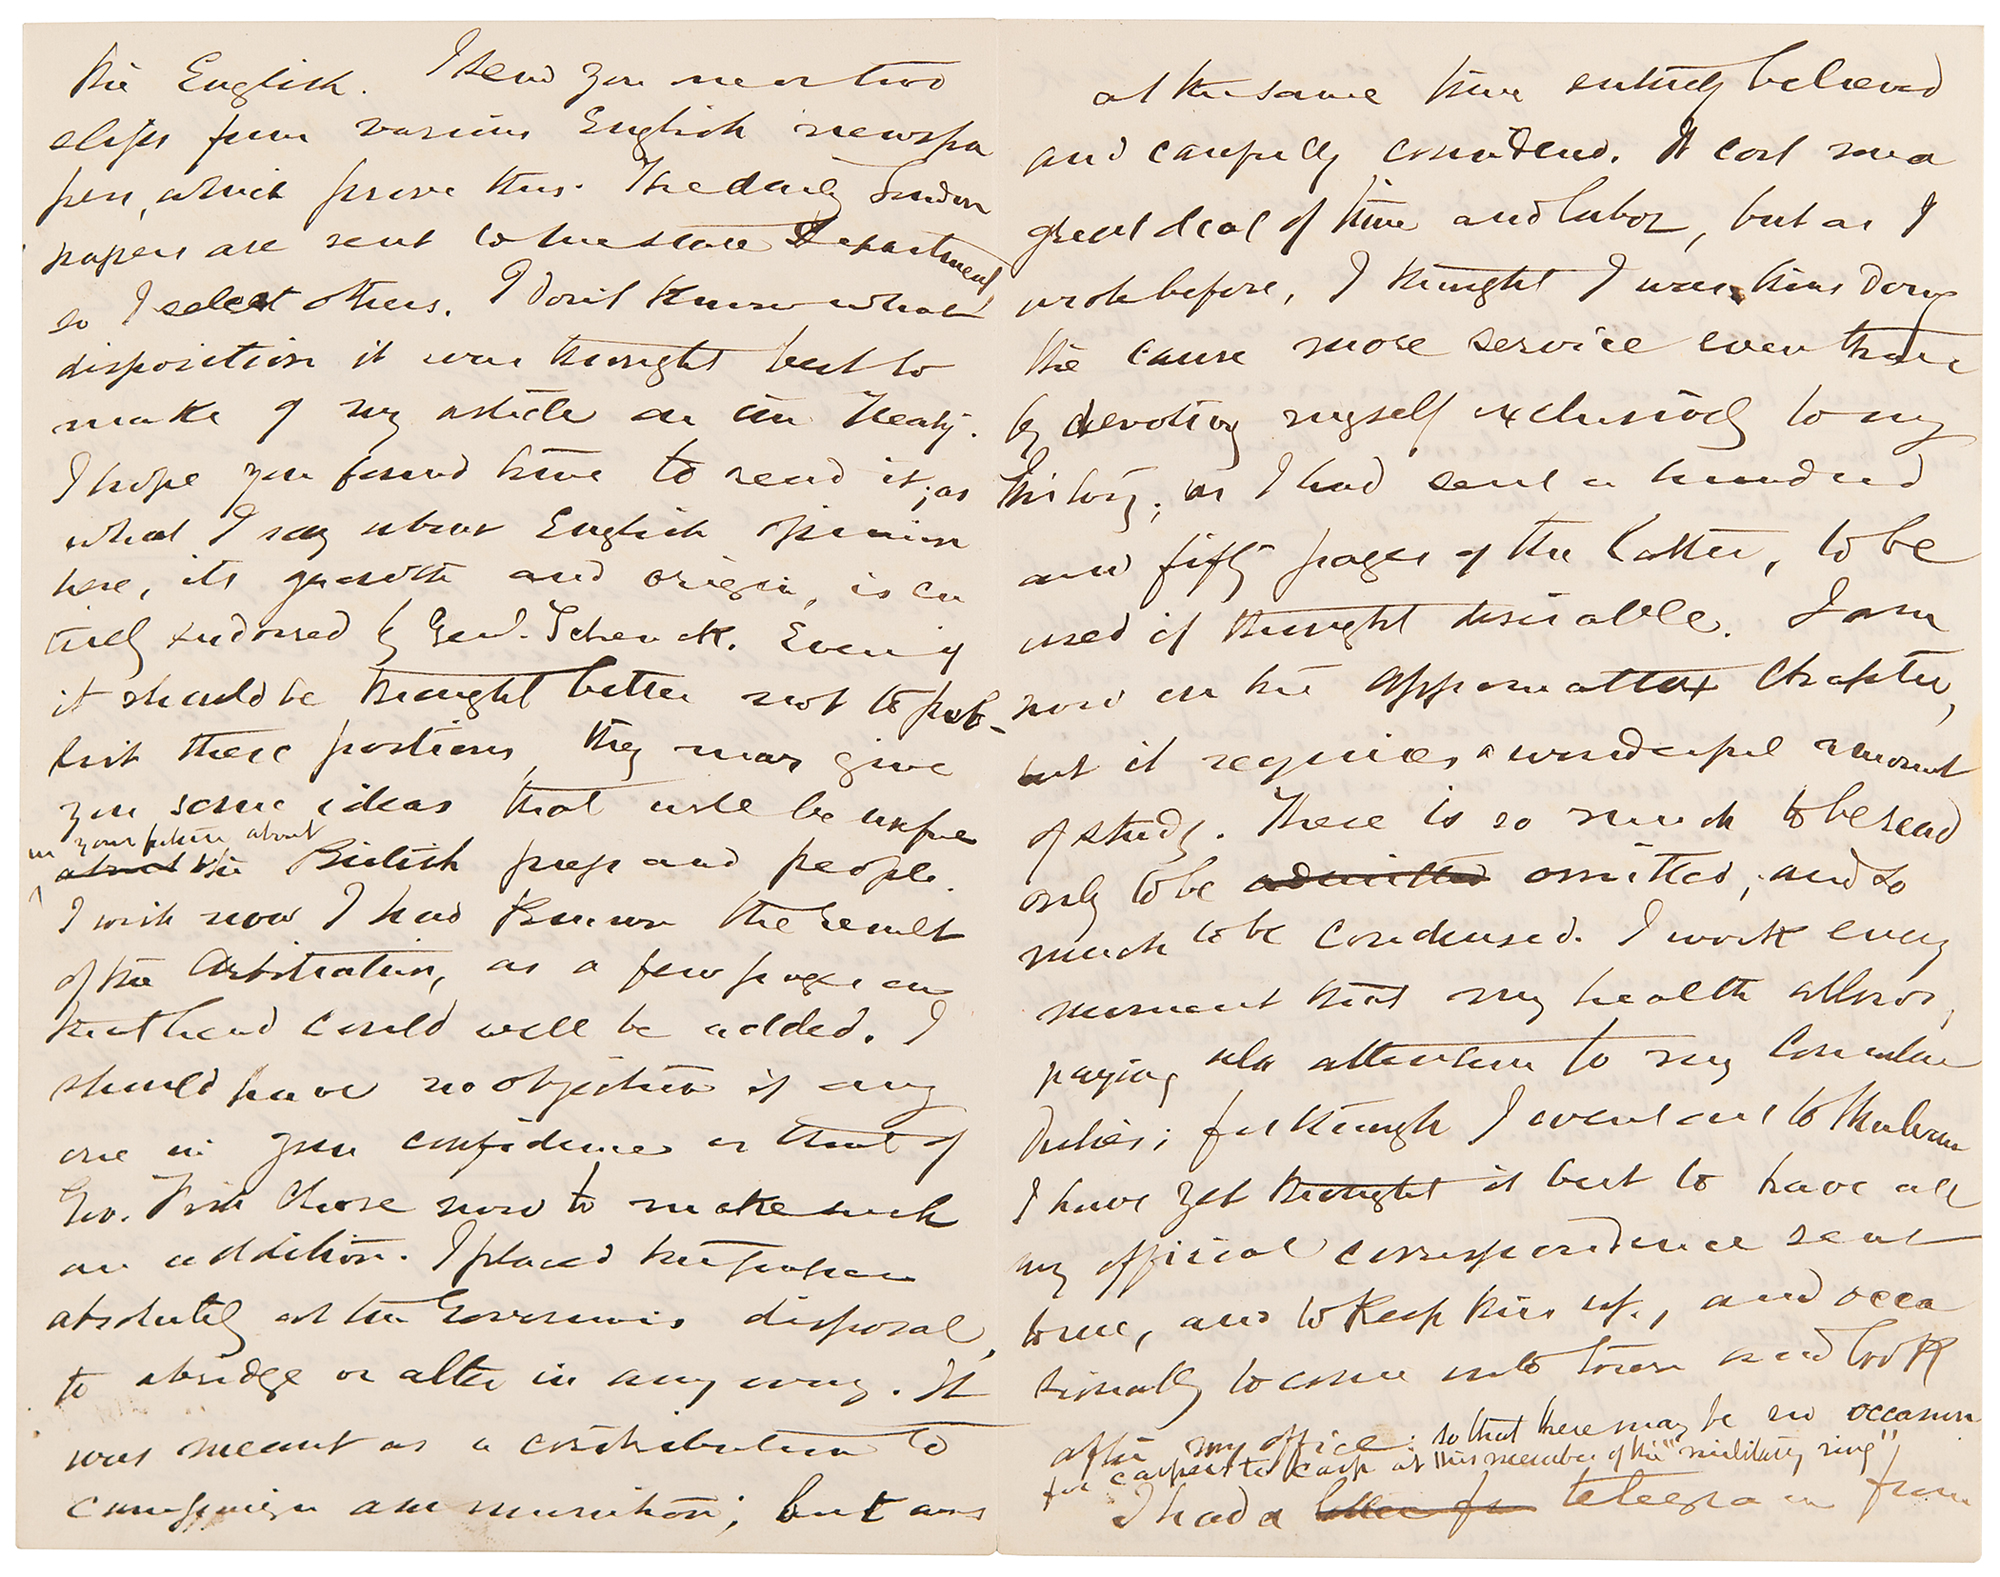 the English. I send you now two
slips from various English newspa
pers, which prove this. The daily London
papers are sent to the State Department
so I select others. I don't know what
disposition it was thought best to
make of my article on the Treaty.
I hope you found time to read it, as
what I say about English opinion
here, its growth and origin, is en
tirely endorsed by Genl. Schenck. Even if
it should be thought better not to pub-
lish these portions, they may give
you some ideas that will be useful
in your future about
about the British press and people.
I wish now I had known the result
of the Arbitration, as a few pages on
that head could well be added. I
should have no objection if any
one in your confidence or that of
Gov. Fish chose now to make such
an addition. I placed the paper
absolutely at the Governor's disposal,
to abridge or alter in any way. It
was meant as a contribution to
campaign ammunition; but was
at the same time entirely believed
and carefully considered. It cost me a
great deal of time and labor, but as I
wrote before, I thought I was thus doing
the cause more service even than
by devoting myself exclusively to my
History; as I had sent a hundred
and fifty pages of the latter, to be
used if thought desirable. I am
now on the Appomattox Chapter,
but it requires a wonderful amount
of study. There is so much to be read
only to be admitted omitted, and so
much to be condensed. I work every
moment that my health allows,
paying also attention to my Consular
Duties; for though I went out to
I have yet thought it best to have all
my official correspondence sent
to me, and to keep this up, and occa
sionally to come into town and look
after my office; so that there may be no occasion
for carpers to carp at this member of the "military ring"
I had a letter fr telegram from